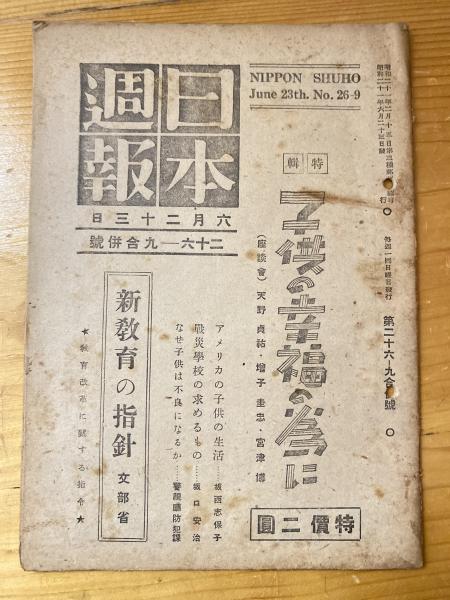 NIPPON SHUHO
June 23th. No. 26-9
日本週報
六月二十三日
二十六―九合併號
特輯
子供の幸福の為に
(座談會) 天野貞祐・増子圭忠・宮津博
アメリカの子供の生活……坂西志保子
戰災學校の求めるもの……坂口安治
なぜ子供は不良になるか……警視廳防犯課
新敎育の指針 文部省
★敎育改革に關する指令★
特價二圓
昭和二十一年六月二十三日發行
毎週一回日曜日發行
第二十六・九合 號